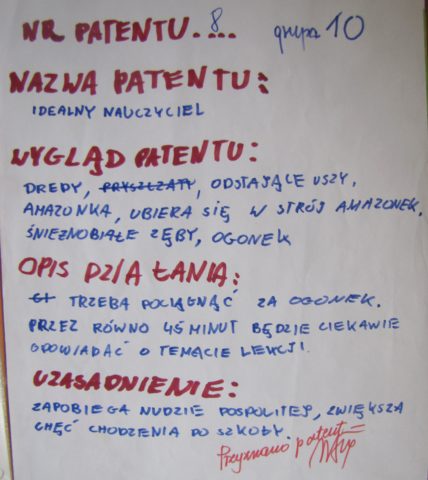 NR PATENTU. 8... grupa 10
NAZWA PATENTU:
IDEALNY NAUCZYCIEL
WYGLĄD PATENTU:
DREDY, PRYSZCZATY, ODSTAJĄCE USZY,
AMAZONKA, UBIERA SIĘ W STRÓJ AMAZONEK,
ŚNIEŻNOBIAŁE ZĘBY, OGONEK
OPIS DZIAŁANIA:
TRZEBA POCIĄGNĄĆ ZA OGONEK.
PRZEZ RÓWNO 45 MINUT BĘDZIE CIEKAWIE
OPOWIADAĆ O TEMACIE LEKCJI.
UZASADNIENIE:
ZAPOBIEGA NUDZIE POSPOLITEJ, ZWIĘKSZA
CHĘĆ CHODZENIA DO SZKOŁY.
Przyznano patent